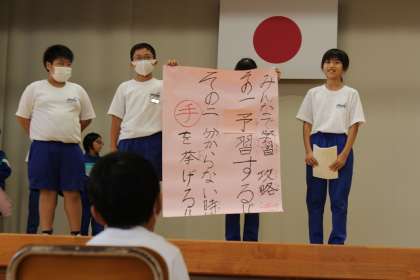 みんなで学習 攻略
その一 予習する!!
その二 分からない時
手を挙げる!!